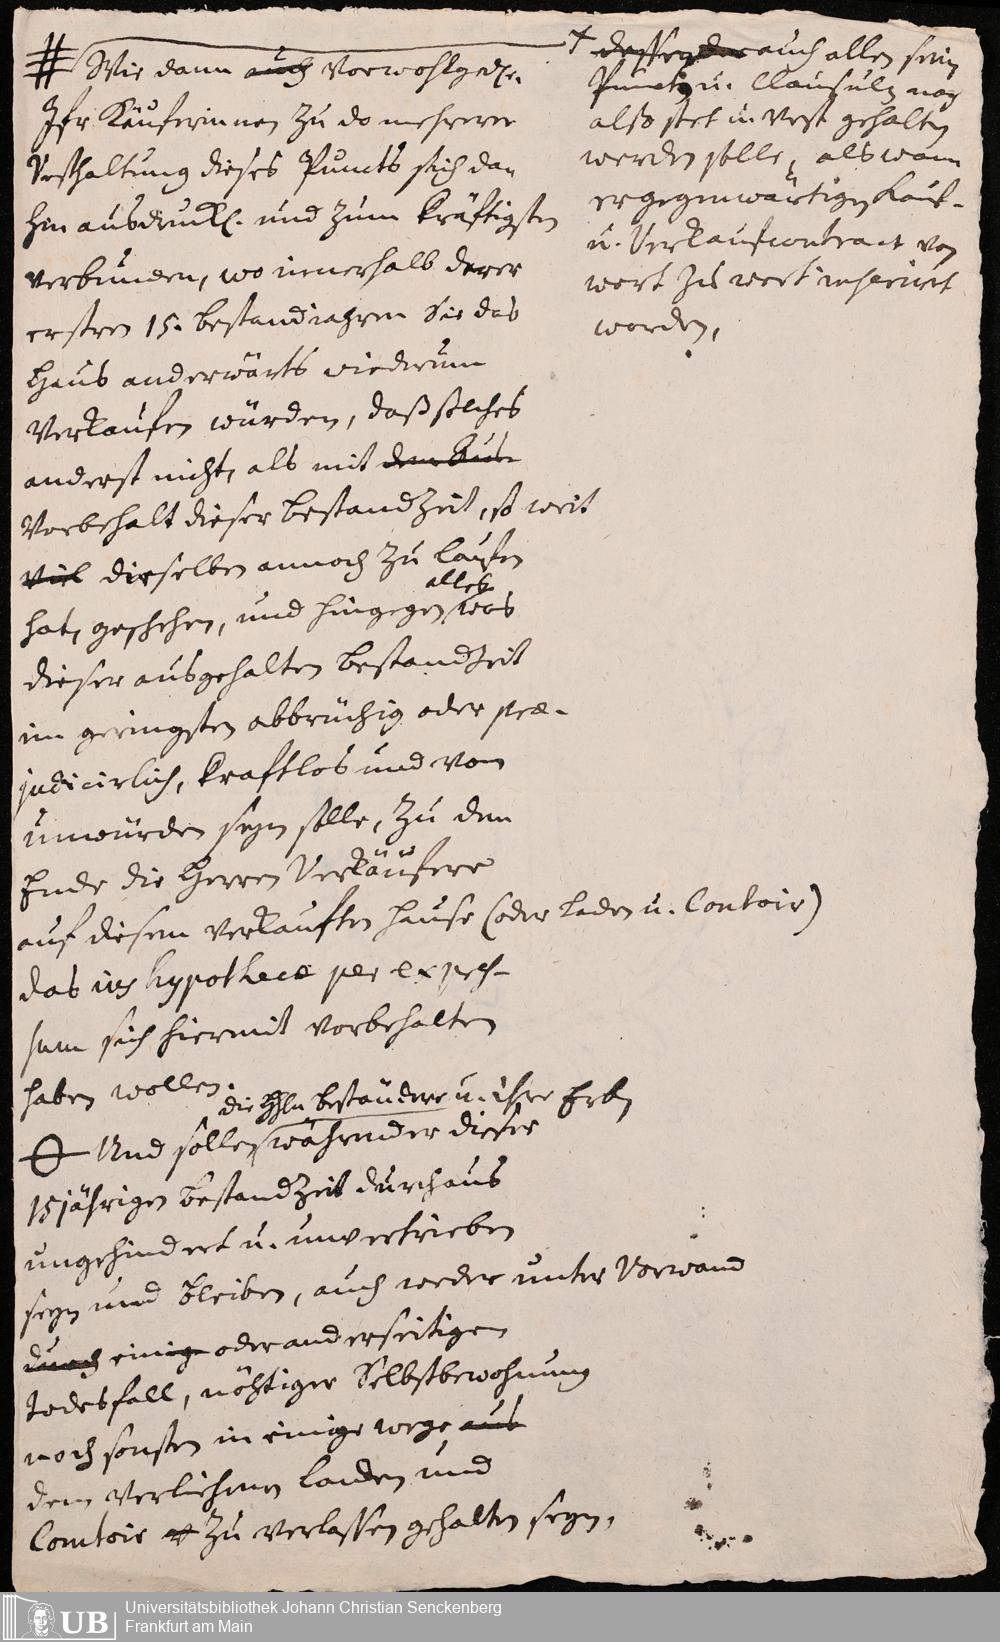 # Wie dann auch Vorwohlged.
Jfr Käuferinnen zu do mehrerer
Vesthaltung dieses Puncts sich dan
hin ausdruckl. und zum kräftigsten
verbunden, wo innerhalb derer
ersten 15. bestandiahren Sie das
Haus anderwärts wiedrum
Verkaufen würden, daß solches
anderst nicht, als mit dem
Vorbehalt dieser bestandZeit, so weit
viel dieselben annoch zu lauffen
hat, geschehen, und hingegen alles was
dieser ausgehalten bestandzeit
im geringsten abbrüchig oder præ-
judicirlich, kraftlos und von
unwürden seyn solle, zu dem
Ende die Herren Verkäufere
auf diesem verkauften Hause (oder Laden u. Contoir)
das ius hypothecæ per expres-
sum sich hiermit vorbehalten
haben wollen.
die HHln beständere u. ihre Erbn
Und sollen währender dieser
15jährigen bestandZeit durchaus
ungehindert u. unvertrieben
seyn und bleiben, auch weder unter Vorwand
durch einig oder anderseitigen
todesfall, nöhtiger Selbstbewohnung
noch sonsten in einige wege aus
dem verliehenen Laden und
Contoir zu verlassen gehalten seyn.
† auch allen sein
Puncten u. Clausuln nach
also stet u. vest gehalten
werden solle, als wann
er gegenwärtigen Kauf-
u. Verkaufcontract von
wort zu wort inserirt
worden,
UB Universitätsbibliothek Johann Christian Senckenberg
Frankfurt am Main